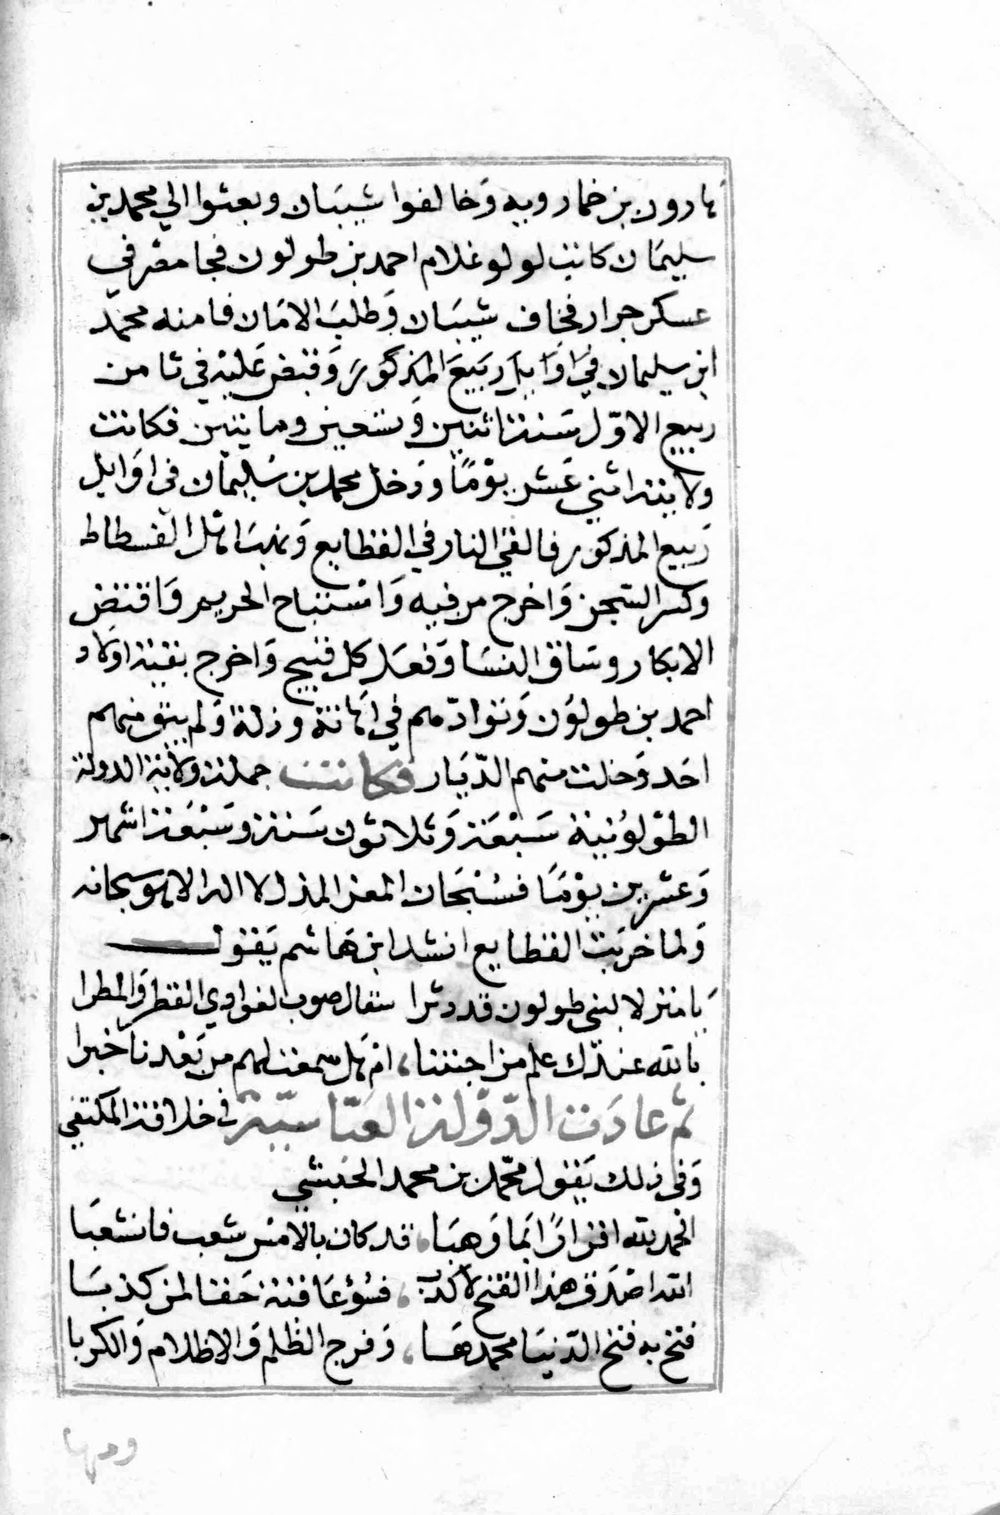 هارون بن خمارويه وخالفوا شيبان وبعثوا الي محمد بن
سليمان كاتب لولو غلام احمد بن طولون فجا مصر في
عسكر جرار فخاف شيبان وطلب الامان فامنه محمد
ابن سليمان في اوايل ربيع المذكور وقبض عليه في ثامن
ربيع الاول سنة اثنين وتسعين ومايتين فكانت
ولايته اثني عشر يوما ودخل محمد بن سليمان في اوايل
ربيع المذكور فالقي النار في القطايع ونهب اهل الفسطاط
وكسر السجن واخرج من فيه واستباح الحريم وافتض
الابكار وساق النسا وفعل كل قبيح واخرج بقية اولاد
احمد بن طولون وقوادهم في اهانة وذلة ولم يبق منهم
احد وخلت منهم الديار فكانت جملة ولاية الدولة
الطولونية سبعة وثلاثون سنة وسبعة اشهر
وعشرين يوما فسبحان المعز المذل لا اله الا هو سبحانه
ولما خربت القطايع انشد ابن هاشم يقول
يا منزلا لبني طولون قد دثرا سقاك صوب الغوادي القطر والمطرا
بالله عندك علم من احبتنا، ام هل سمعت لهم من بعدنا خبرا
ثم عادت الدولة العباسية في خلافة المكتفي
وفي ذلك يقول محمد بن محمد الحبشي
الحمد لله اقرارا بما وهبا، قد كان بالامس شعب فانشعبا
الله اصدق هذا الفتح لا كذب، فسؤ عاقبة حقا لمن كذبا
فتح به فتح الدنيا محمدها، وفرج الظلم والاظلام والكربا